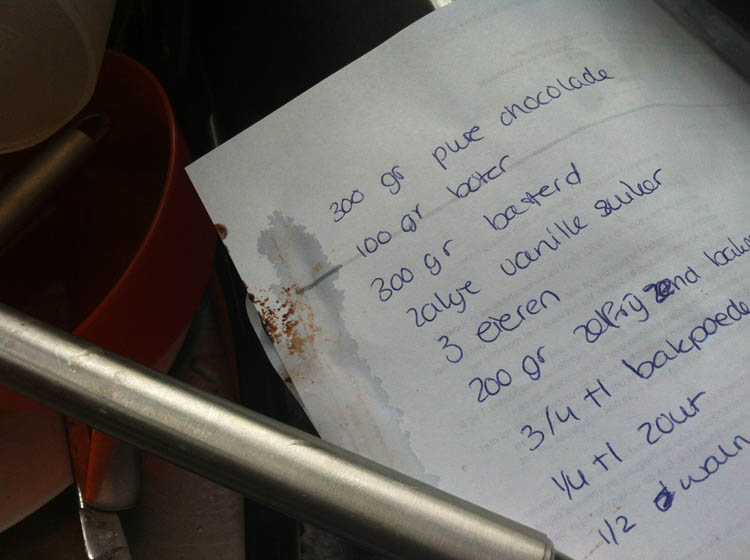 300 gr pure chocolade
100 gr boter
300 gr basterd
zakje vanille suiker
3 eieren
200 gr zelfrijzend
3/4 tl bakpoede
1/4 tl zout
1/2